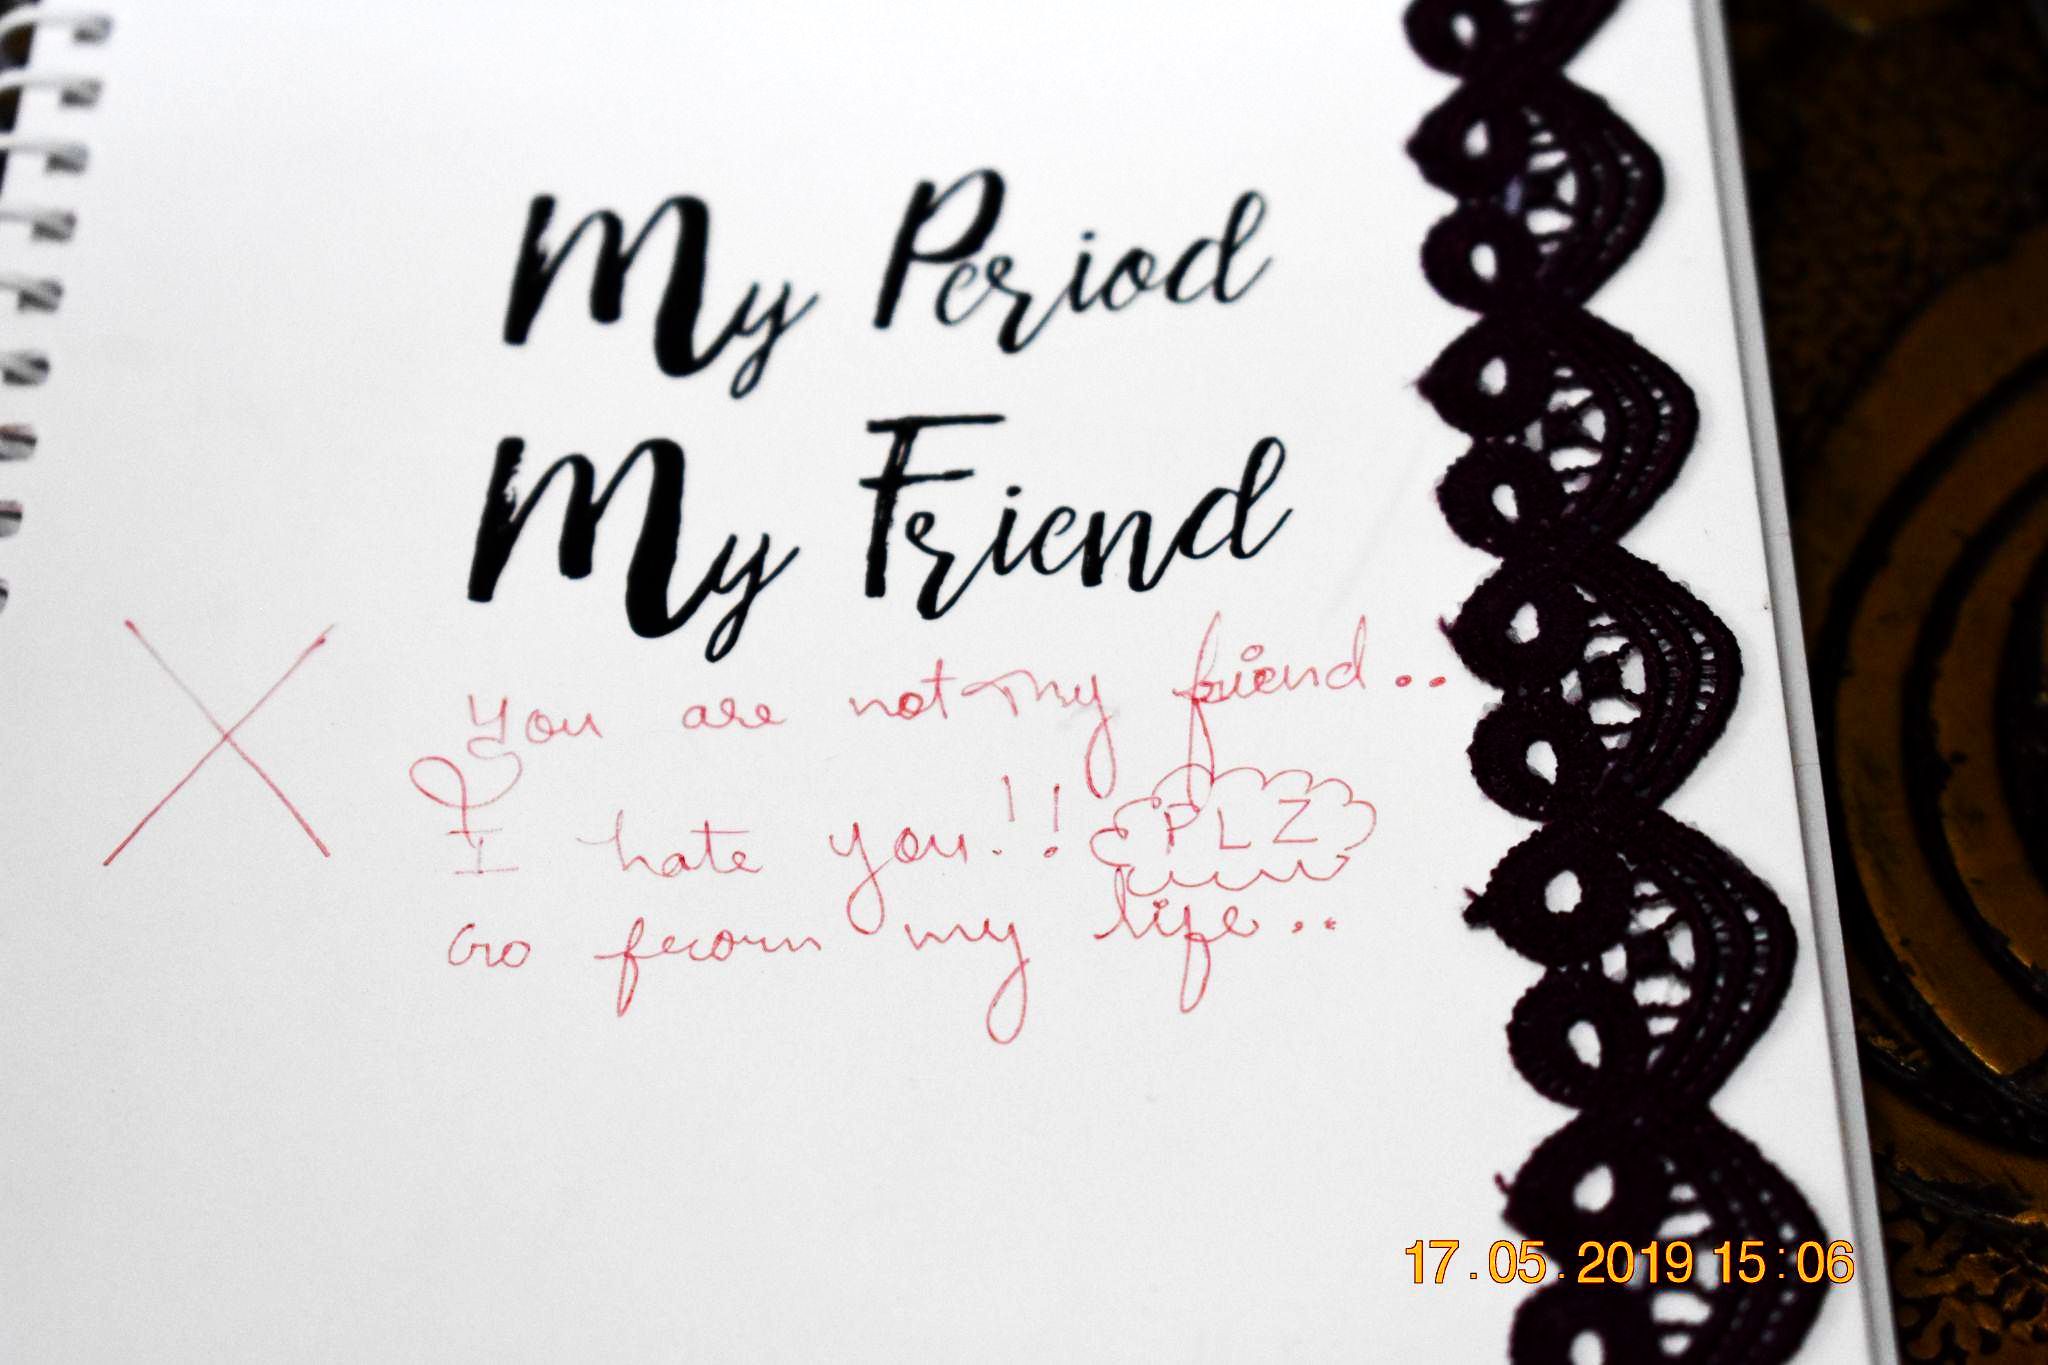 My Period
My Friend
You are not my friend..
I hate you!! PLZ
Go from my life..
17.05.2019 15:06